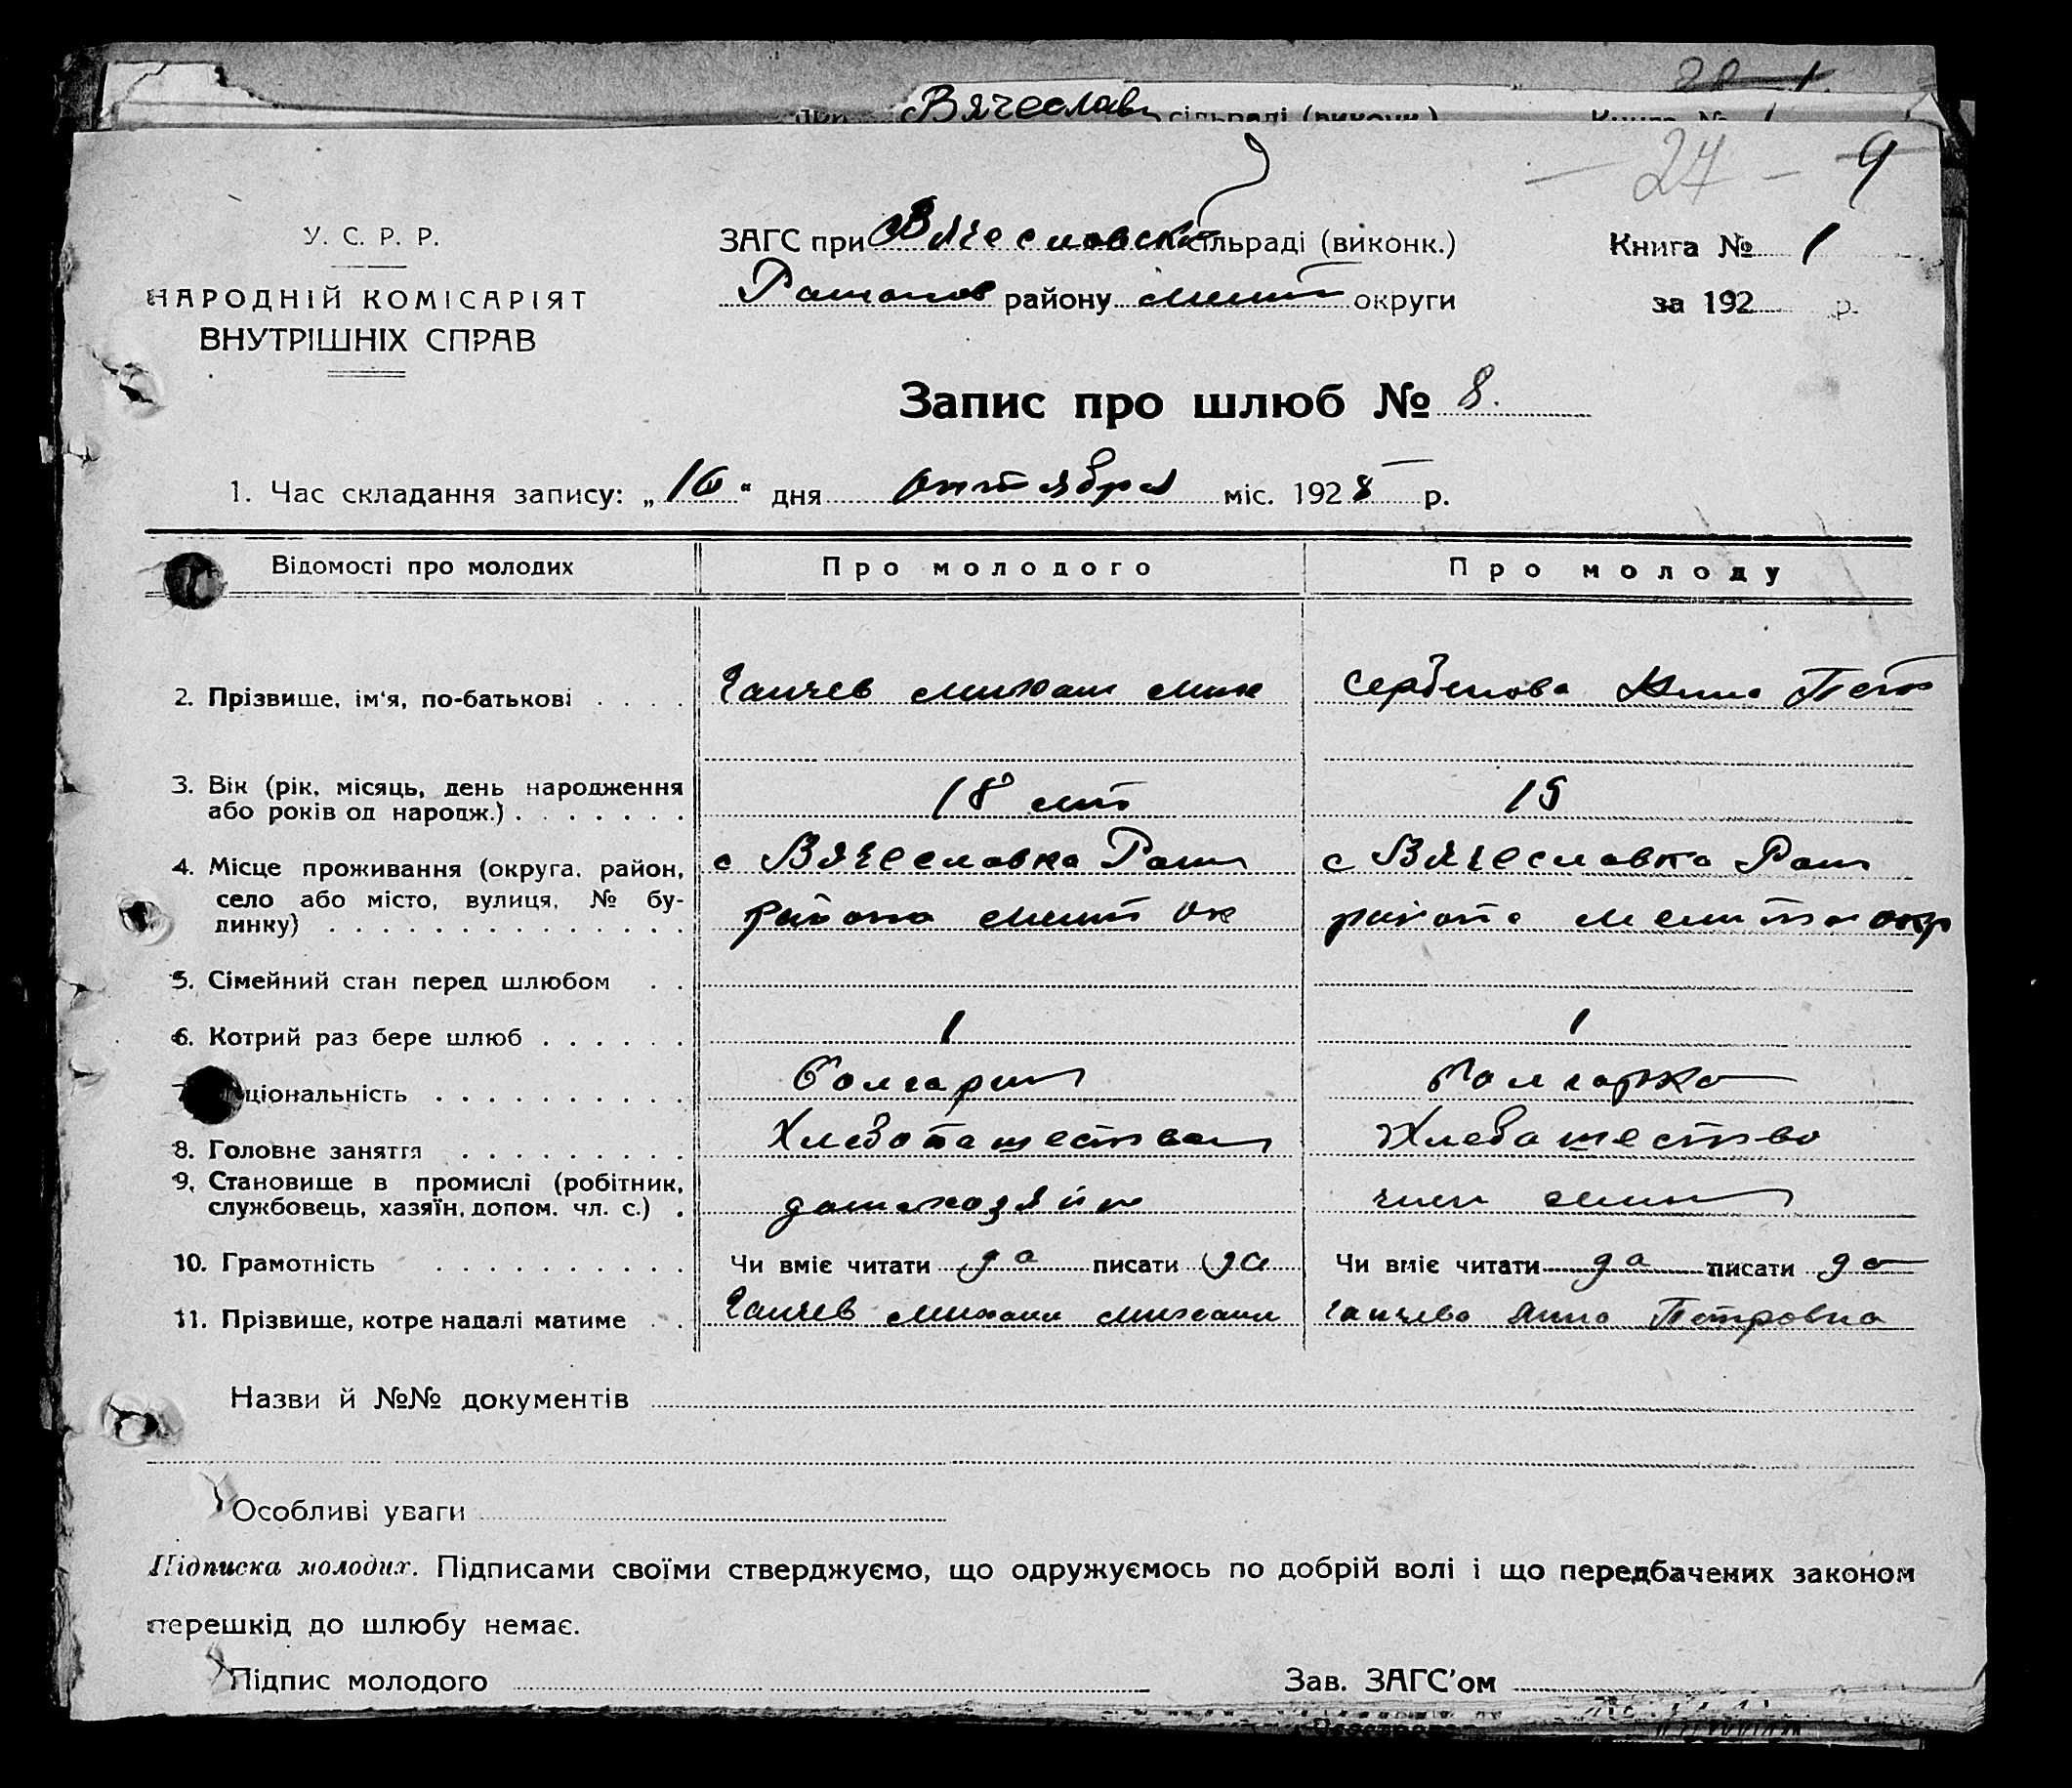 Вячеславв сільраді (виконк.) Книга № 1
— 27 — 9
У. С. Р. Р.
НАРОДНІЙ КОМІСАРІЯТ
ВНУТРІШНІХ СПРАВ
ЗАГС при Вячесловско сільраді (виконк.)
Романов району Мелит округи
Книга № 1
за 192 р.
Запис про шлюб № 8.
1. Час складання запису: „16“ дня октября міс. 1928 р.
Відомості про молодих Про молодого Про молоду
2. Прізвище, ім'я, по-батькові Ганчев Михаил Мих Сербинова Анна Петр
3. Вік (рік, місяць, день народження
або років од народж.) 18 лет 19
4. Місце проживання (округа, район, с Вячеславка Ром с Вячеславка Ром
село або місто, вулиця, № бу-
динку) района Мелит ок района Мелито окр
5. Сімейний стан перед шлюбом
6. Котрий раз бере шлюб 1 1
7. ціональність Болгарин Болгарка
8. Головне заняття
9. Становище в промислі (робітник,
службовець, хазяїн, допом. чл. с.) домохозяин член
10. Грамотність Чи вміє читати да писати да Чи вміє читати да писати да
11. Прізвище, котре надалі матиме Ганчев Михаил Михаил Ганчева Анна Петровна
Назви й №№ документів
Особливі уваги
Підписка молодих. Підписами своїми стверджуємо, що одружуємось по добрій волі і що передбачених законом
перешкід до шлюбу немає.
Підпис молодого Зав. ЗАГС'ом